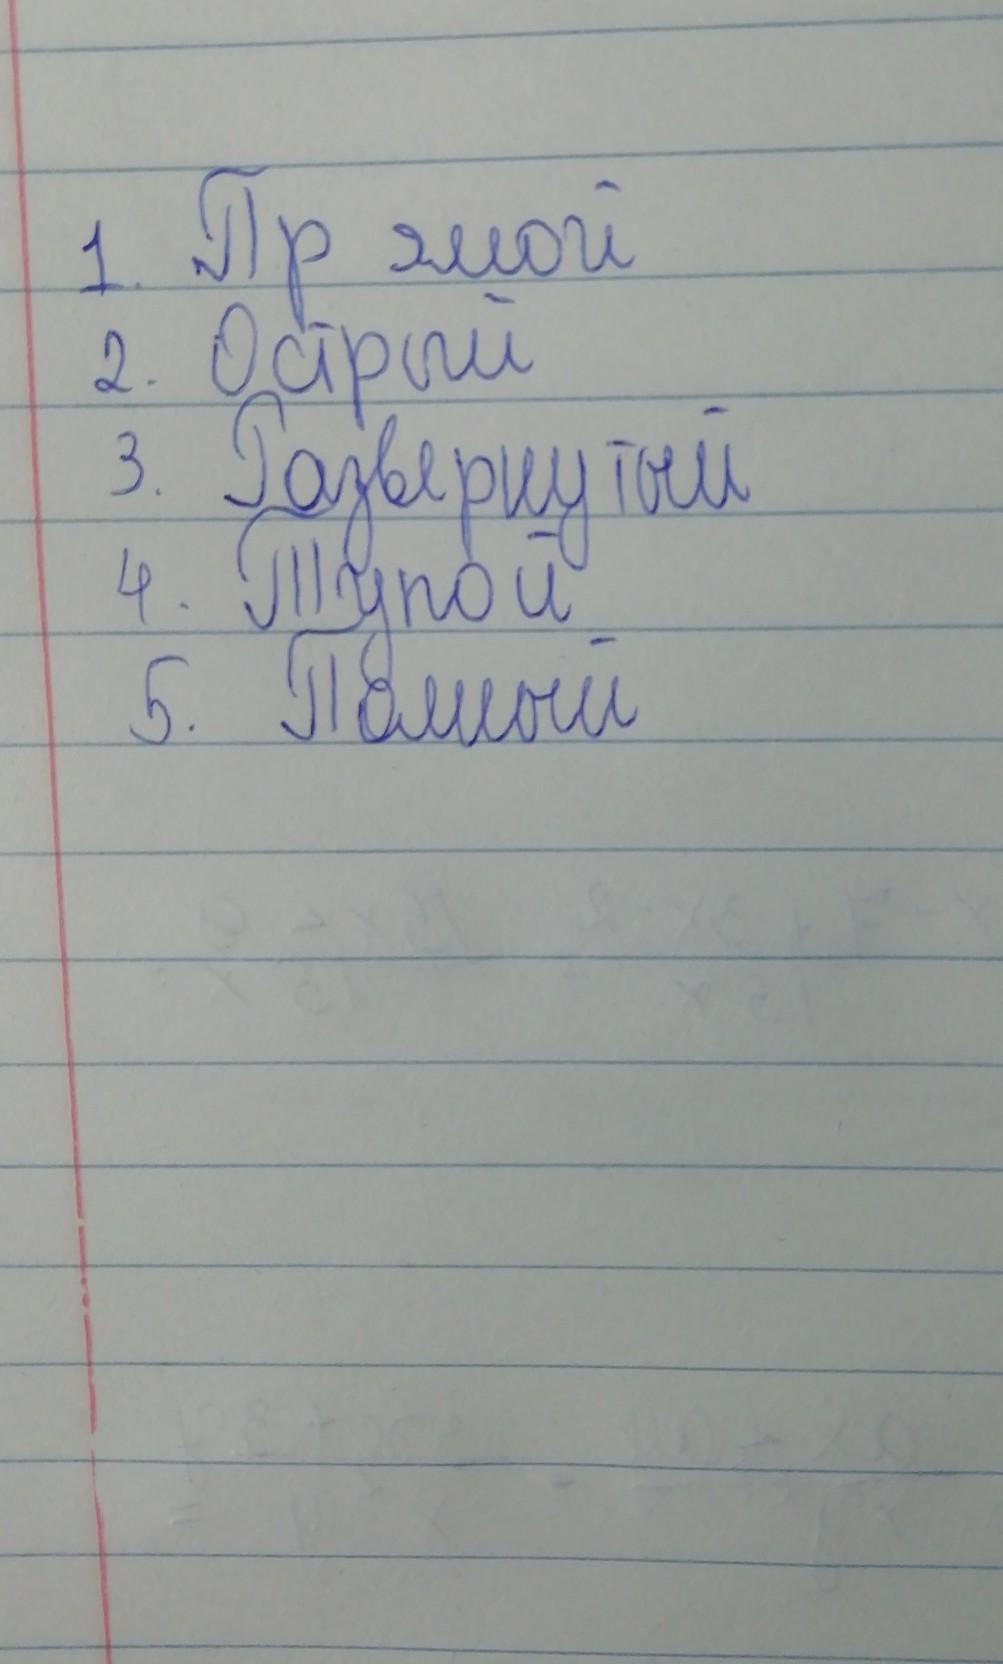 1. Прямой
2. Острый
3. Развернутый
4. Тупой
5. Полный